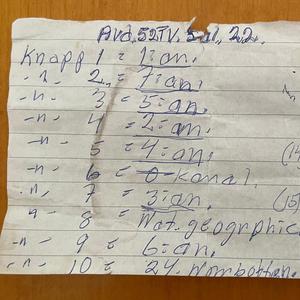 Knapp 1 = 1:an.
-"- 2 = 7:an.
-n- 3 = 5:an.
-n- 4 = 2:an.
-n- 5 = 4:an.
-n- 6 = 0-kanal.
-n- 7 = 3:an.
-n- 8 = Nat. geographic
-n- 9 = 6:an.
-n- 10 = 24. Norrbotten.